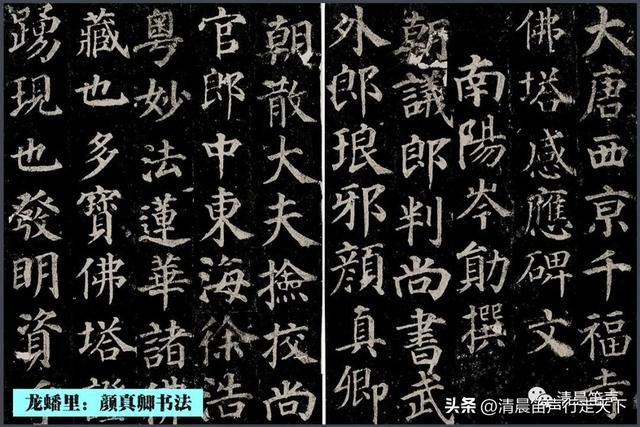 大唐西京千福寺
佛塔感應碑文
南陽岑勛撰
朝議郎判尚書武
外郎琅邪顏真卿
朝散大夫撿挍尚
官郎中東海徐浩
粵妙法蓮華諸佛
藏也多寶佛塔證
踴現也發明資
龙蟠里：颜真卿书法
清晨笛声
头条 @清晨笛声行走天下